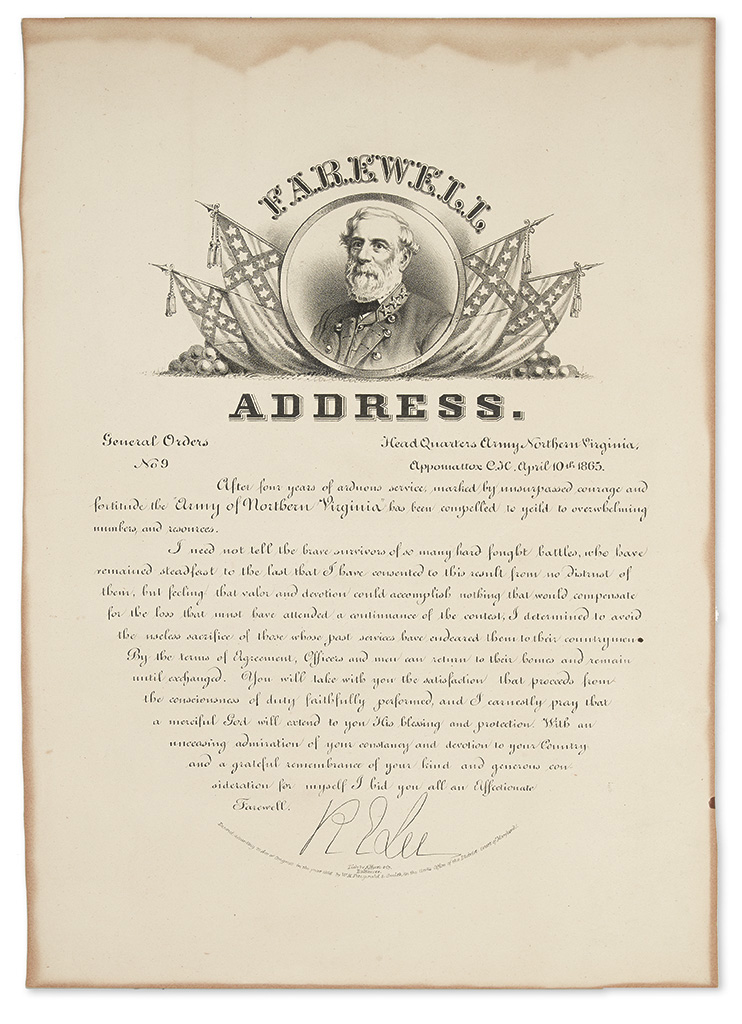 FAREWELL
ADDRESS.
General Orders
No 9
Head Quarters Army Northern Virginia,
Appomattox C.H. April 10th 1865.
After four years of arduous service, marked by unsurpassed courage and
fortitude the "Army of Northern Virginia" has been compelled to yeild to overwhelming
numbers, and resources.
I need not tell the brave survivors of so many hard fought battles, who have
remained steadfast to the last that I have consented to this result from no distrust of
them, but feeling that valor and devotion could accomplish nothing that would compensate
for the loss that must have attended a continuance of the contest, I determined to avoid
the useless sacrifice of those whose past services have endeared them to their countrymen.
By the terms of Agreement, Officers and men can return to their homes and remain
until exchanged. You will take with you the satisfaction that proceeds from
the consciousness of duty faithfully performed, and I earnestly pray that
a merciful God will extend to you His blessing and protection. With an
unceasing admiration of your constancy and devotion to your Country
and a grateful remembrance of your kind and generous con
sideration for myself I bid you all an Affectionate
Farewell.
R E Lee
Baltimore.
Entered according to Act of Congress in the year by W. H. in the Clerks Office of the District Court of Maryland